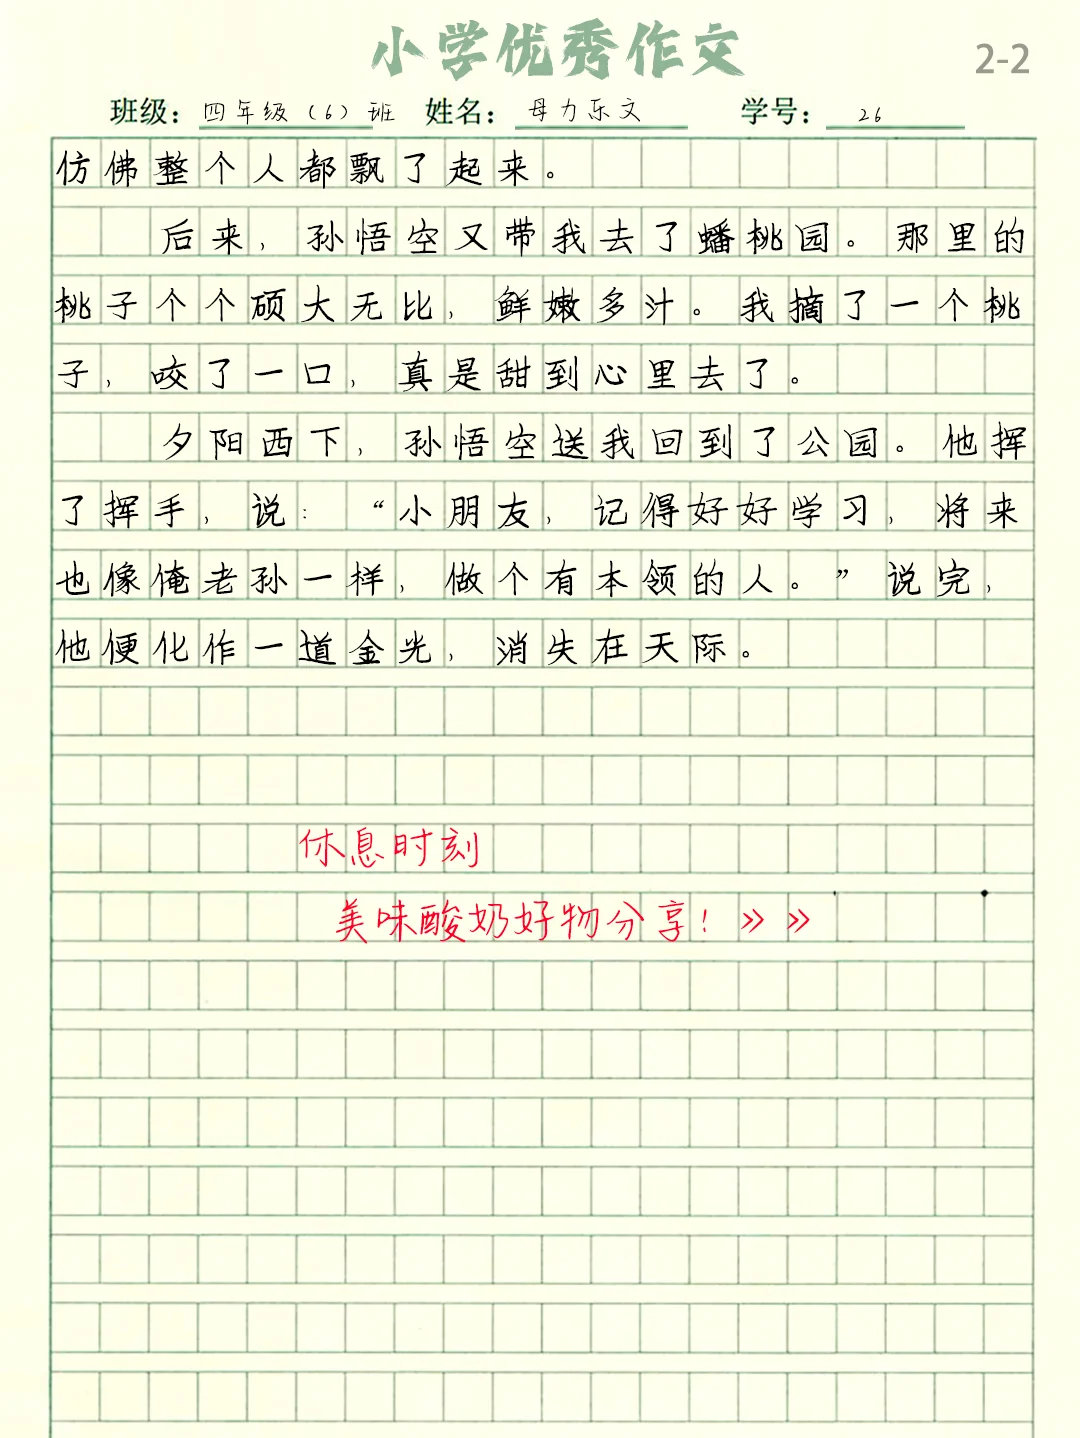 小学优秀作文
2-2
班级：四年级（6）班 姓名：母力乐文 学号：26
仿佛整个人都飘了起来。
后来，孙悟空又带我去了蟠桃园。那里的
桃子个个硕大无比，鲜嫩多汁。我摘了一个桃
子，咬了一口，真是甜到心里去了。
夕阳西下，孙悟空送我回到了公园。他挥
了挥手，说：“小朋友，记得好好学习，将来
也像俺老孙一样，做个有本领的人。”说完，
他便化作一道金光，消失在天际。
休息时刻
美味酸奶好物分享！》》